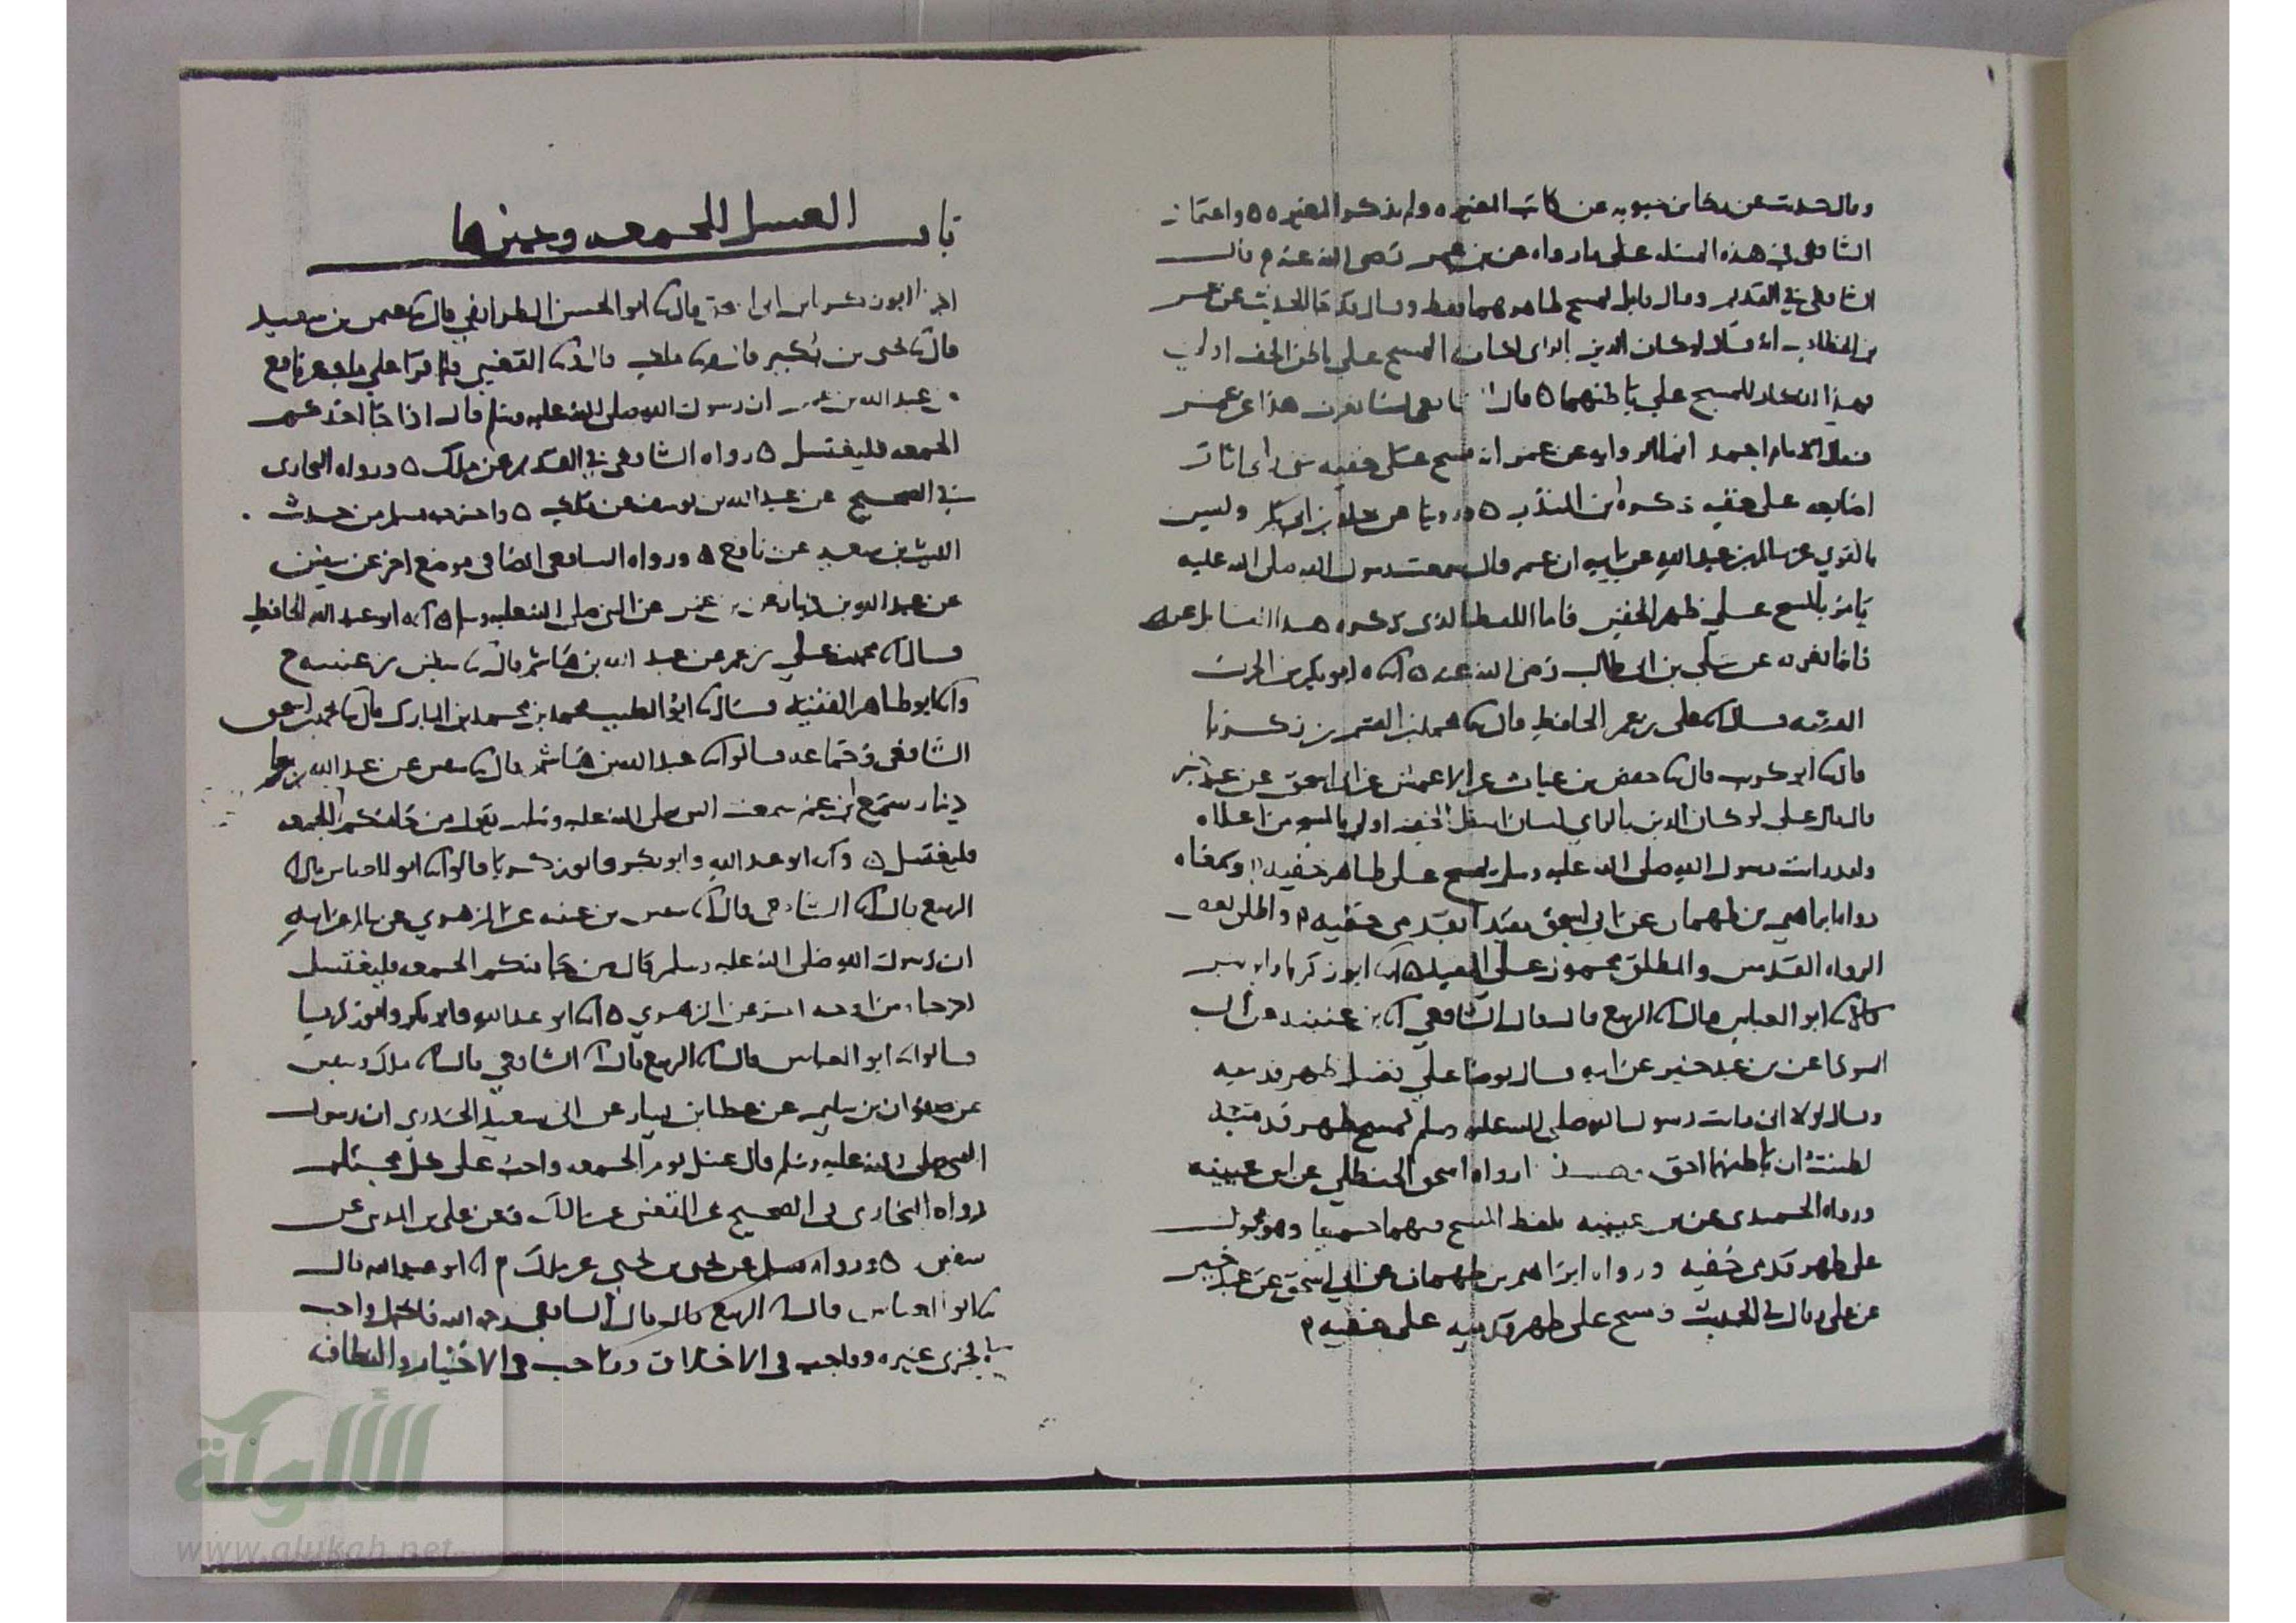 وقال حدثت عن رجا بن حيوة عن كاتب المغيرة ولم يذكر المغيرة ٥ واعتماد
الشافعي في هذه المسئله على ما رواه عن بن عمر رضى الله عنه م قال
الشافعي في القديم وقال قايل يمسح ظاهرهما فقط وقال قد جا الحديث عن عمر
بن الخطاب انه قال لو كان الدين بالراى لكان المسح على باطن الخف اولى
قال الشافعي لسنا نعرف هذا عن عمر
قال الامام احمد انما الرواية عن عمر انه مسح على خفيه حتى راى اثار
اصابعه على خفيه ذكره ابن المنذر ٥ وروينا عن خلد بن ابى بكر وليس
بالقوي عن سالم بن عبد الله عن ابيه ان عمر قال سمعت رسول الله صلى الله عليه
يامر بالمسح على ظهر الخفين فاما اللفظ الذى ذكره هذا القايل عن عمر
فانما نعرفه عن على بن ابى طالب رضى الله عنه ٥ انا ابو بكر بن الحرث
الفقيه قال انا على بن عمر الحافظ قال نا محمد بن القسم بن زكريا
قال نا ابو كريب قال نا حفص بن غياث عن الاعمش عن ابى اسحق عن عبد خير
قال قال على لو كان الدين بالراي لكان اسفل الخف اولى بالمسح من اعلاه
ولقد رايت رسول الله صلى الله عليه وسلم يمسح على ظاهر خفيه وبمعناه
رواه ابراهيم بن طهمان عن ابى اسحق مقيدا بقدمي خفيه م واطلق بعض
الرواه القدمين والمطلق محمول على المقيد ٥ انا ابو زكريا وابو سعيد
قالا نا ابو العباس قال انا الربيع قال قال الشافعي انا بن عيينه عن ابى
السودا عن بن عبد خير عن ابيه قال توضا علي فغسل ظهر قدميه
وقال لولا انى رايت رسول الله صلى الله عليه وسلم يمسح ظهر قدميه
لظننت ان باطنهما احق هكذا رواه اسحق الحنظلي عن ابن عيينه
ورواه الحميدى عن بن عيينه بلفظ المسح فيهما جميعا وهو محمول
على ظهر قدمى خفيه ورواه ابراهيم بن طهمان عن ابى اسحق عن عبد خير
عن على وقال في الحديث ومسح على ظهر قدميه على خفيه م
باب الغسل للجمعه وغيرها
اخبرنا ابو زكريا بن ابى اسحق قال نا ابو الحسن الطرايفي قال نا عثمن بن سعيد
قال نا يحيى بن بكير قال نا ملك قال ونا القعنبي قال قرا علي ملك عن نافع
عن عبد الله بن عمر ان رسول الله صلى الله عليه وسلم قال اذا جا احدكم
الجمعه فليغتسل ٥ رواه الشافعي في القديم عن ملك ٥ ورواه البخارى
في الصحيح عن عبد الله بن يوسف عن ملك ٥ واخرجه مسلم من حديث
الليث بن سعد عن نافع ٥ ورواه الشافعي ايضا في موضع اخر عن سفين
عن عبد الله بن دينار عن بن عمر عن النبي صلى الله عليه وسلم ٥ انا ابو عبد الله الحافظ
قال نا محمد بن علي بن عمر عن عبد الله بن هاشم قال نا سفين بن عيينه م
وانا ابو طاهر الفقيه قال نا ابو الطيب محمد بن محمد بن المبارك قال نا محمد بن اسحق
الشافعي وجماعه قالوا نا عبد الله بن هاشم قال نا سفين عن عبد الله بن
دينار سمع ابن عمر سمعت النبي صلى الله عليه وسلم يقول من جا منكم الجمعه
فليغتسل ٥ وانا ابو عبد الله وابو بكر وابو زكريا قالوا نا ابو العباس قال انا
الربيع قال انا الشافعي قال انا سفين بن عيينه عن الزهري عن سالم عن ابيه
ان رسول الله صلى الله عليه وسلم قال من جا منكم الجمعه فليغتسل
اخرجاه من اوجه اخر عن الزهري ٥ انا ابو عبد الله وابو بكر وابو زكريا
قالوا نا ابو العباس قال انا الربيع قال انا الشافعي قال انا ملك وسفين
عن صفوان بن سليم عن عطا بن يسار عن ابى سعيد الخدري ان رسول
الله صلى الله عليه وسلم قال غسل يوم الجمعه واجب على كل محتلم
رواه البخارى فى الصحيح عن القعنبى عن مالك وعن على بن المدينى عن
سفين ٥ ورواه مسلم عن يحيى بن يحيى عن ملك م انا ابو عبد الله قال
نا ابو العباس قال انا الربيع قال قال الشافعى رحمه الله فاحتمل واجب
لا يجزى غيره وواجب فى الاخلاق وواجب فى الاختيار والنظافه
الألوكة
www.alukah.net